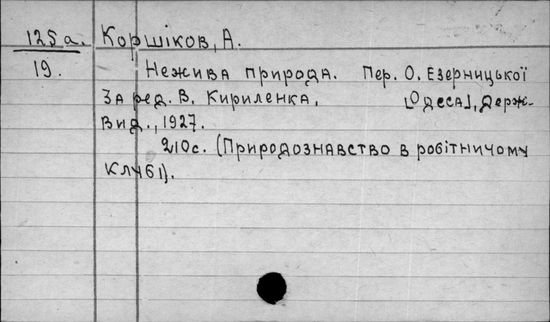 125а. Коршіков, А.
19. Нежива природа. Пер. О. Езерницької
За ред. В. Кириленка. [Одеса], Держ-
вид., 1927.
210с. (Природознавство в робітничому
клубі).